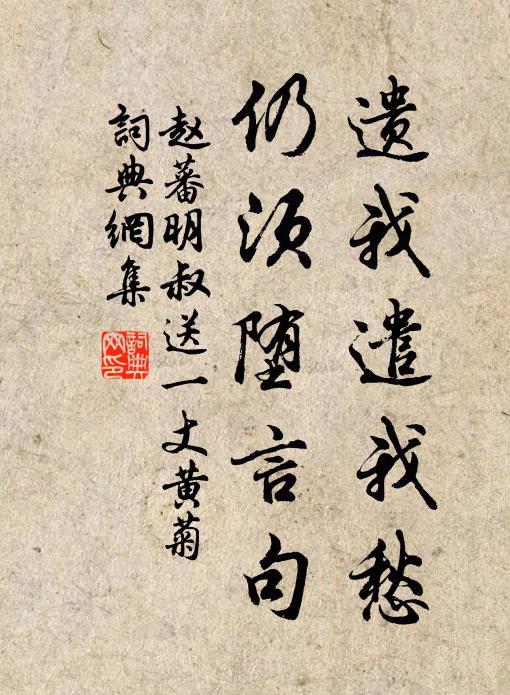 遗我遣我愁
仍须堕言句
赵蕃明叔送一丈黄菊
詞典網集
詞典
网印